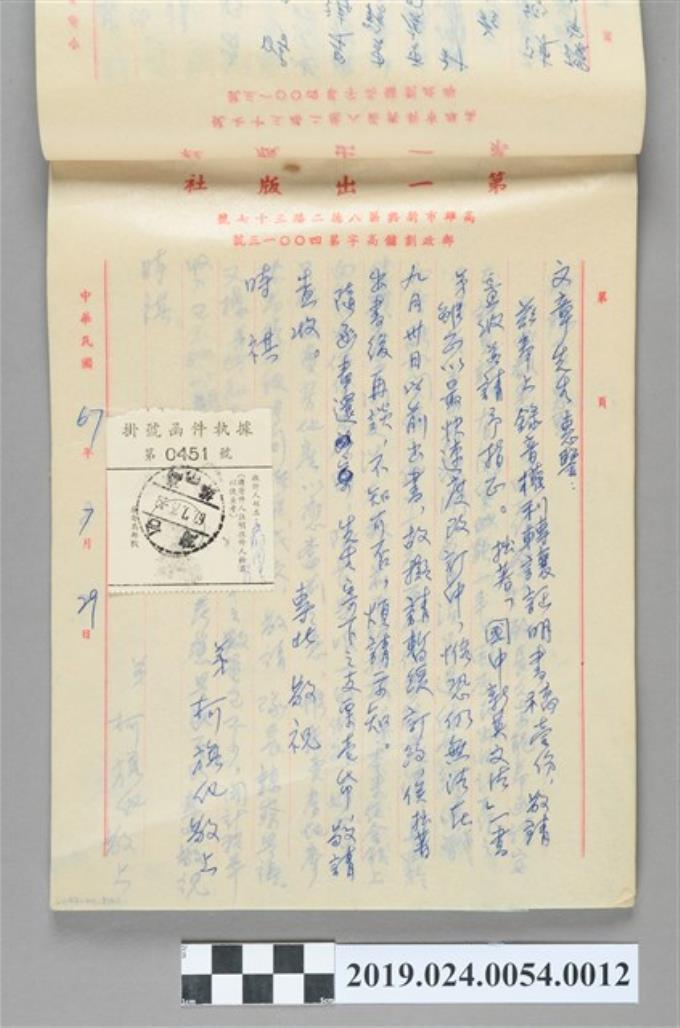 第一出版社
高雄市新興區八德二路三十七號
郵政劃儲高字第四００一三號
第　頁
文章先生惠鑒：
茲奉上錄音權利轉讓証明書稿壹份，敬請
查收並請予指正。拙著「國中新英文法」一書
弟雖已以最快速度改訂中，惟恐仍無法在
九月卅日以前出書，故擬請暫緩訂約俟拙著
出書後再談，不知可否，煩請示知。
隨函奉還 先生寄下之支票壹帋，敬請
查收。 專此 敬祝
時祺
弟 柯旗化敬上
中華民國67年7月29日
掛號函件執據
第 0451 號
2019.024.0054.0012